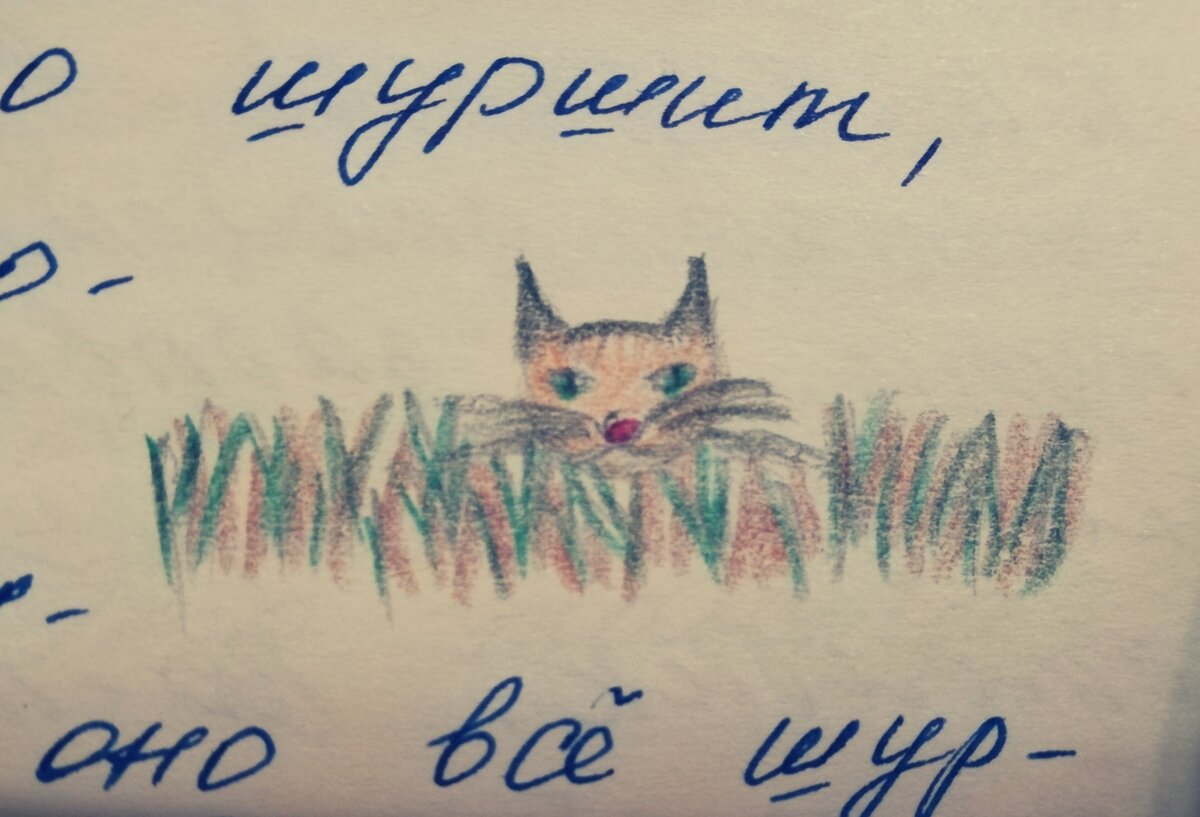 о шуршит,
о-
-
оно всё шур-